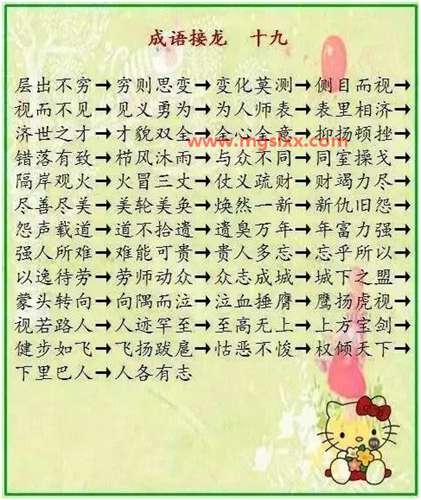 成语接龙 十九
层出不穷→穷则思变→变化莫测→侧目而视→
视而不见→见义勇为→为人师表→表里相济→
济世之才→才貌双全→全心全意→抑扬顿挫→
www.mgslxx.com
错落有致→栉风沐雨→与众不同→同室操戈→
隔岸观火→火冒三丈→仗义疏财→财竭力尽→
尽善尽美→美轮美奂→焕然一新→新仇旧怨→
怨声载道→道不拾遗→遗臭万年→年富力强→
强人所难→难能可贵→贵人多忘→忘乎所以→
以逸待劳→劳师动众→众志成城→城下之盟→
蒙头转向→向隅而泣→泣血捶膺→鹰扬虎视→
视若路人→人迹罕至→至高无上→上方宝剑→
健步如飞→飞扬跋扈→怙恶不悛→权倾天下→
下里巴人→人各有志